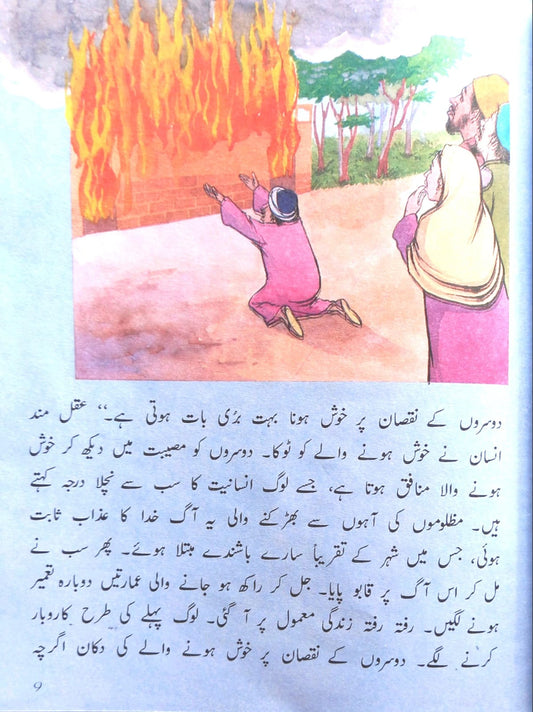 دوسروں کے نقصان پر خوش ہونا بہت بڑی بات ہوتی ہے۔‘‘ عقل مند
انسان نے خوش ہونے والے کو ٹوکا۔ دوسروں کو مصیبت میں دیکھ کر خوش
ہونے والا منافق ہوتا ہے، جسے لوگ انسانیت کا سب سے نچلا درجہ کہتے
ہیں۔ مظلوموں کی آہوں سے بھڑکنے والی یہ آگ خدا کا عذاب ثابت
ہوئی، جس میں شہر کے تقریباً سارے باشندے مبتلا ہوئے۔ پھر سب نے
مل کر اس آگ پر قابو پایا۔ جل کر راکھ ہو جانے والی عمارتیں دوبارہ تعمیر
ہونے لگیں۔ رفتہ رفتہ زندگی معمول پر آ گئی۔ لوگ پہلے کی طرح کاروبار
کرنے لگے۔ دوسروں کے نقصان پر خوش ہونے والے کی دکان اگرچہ
9